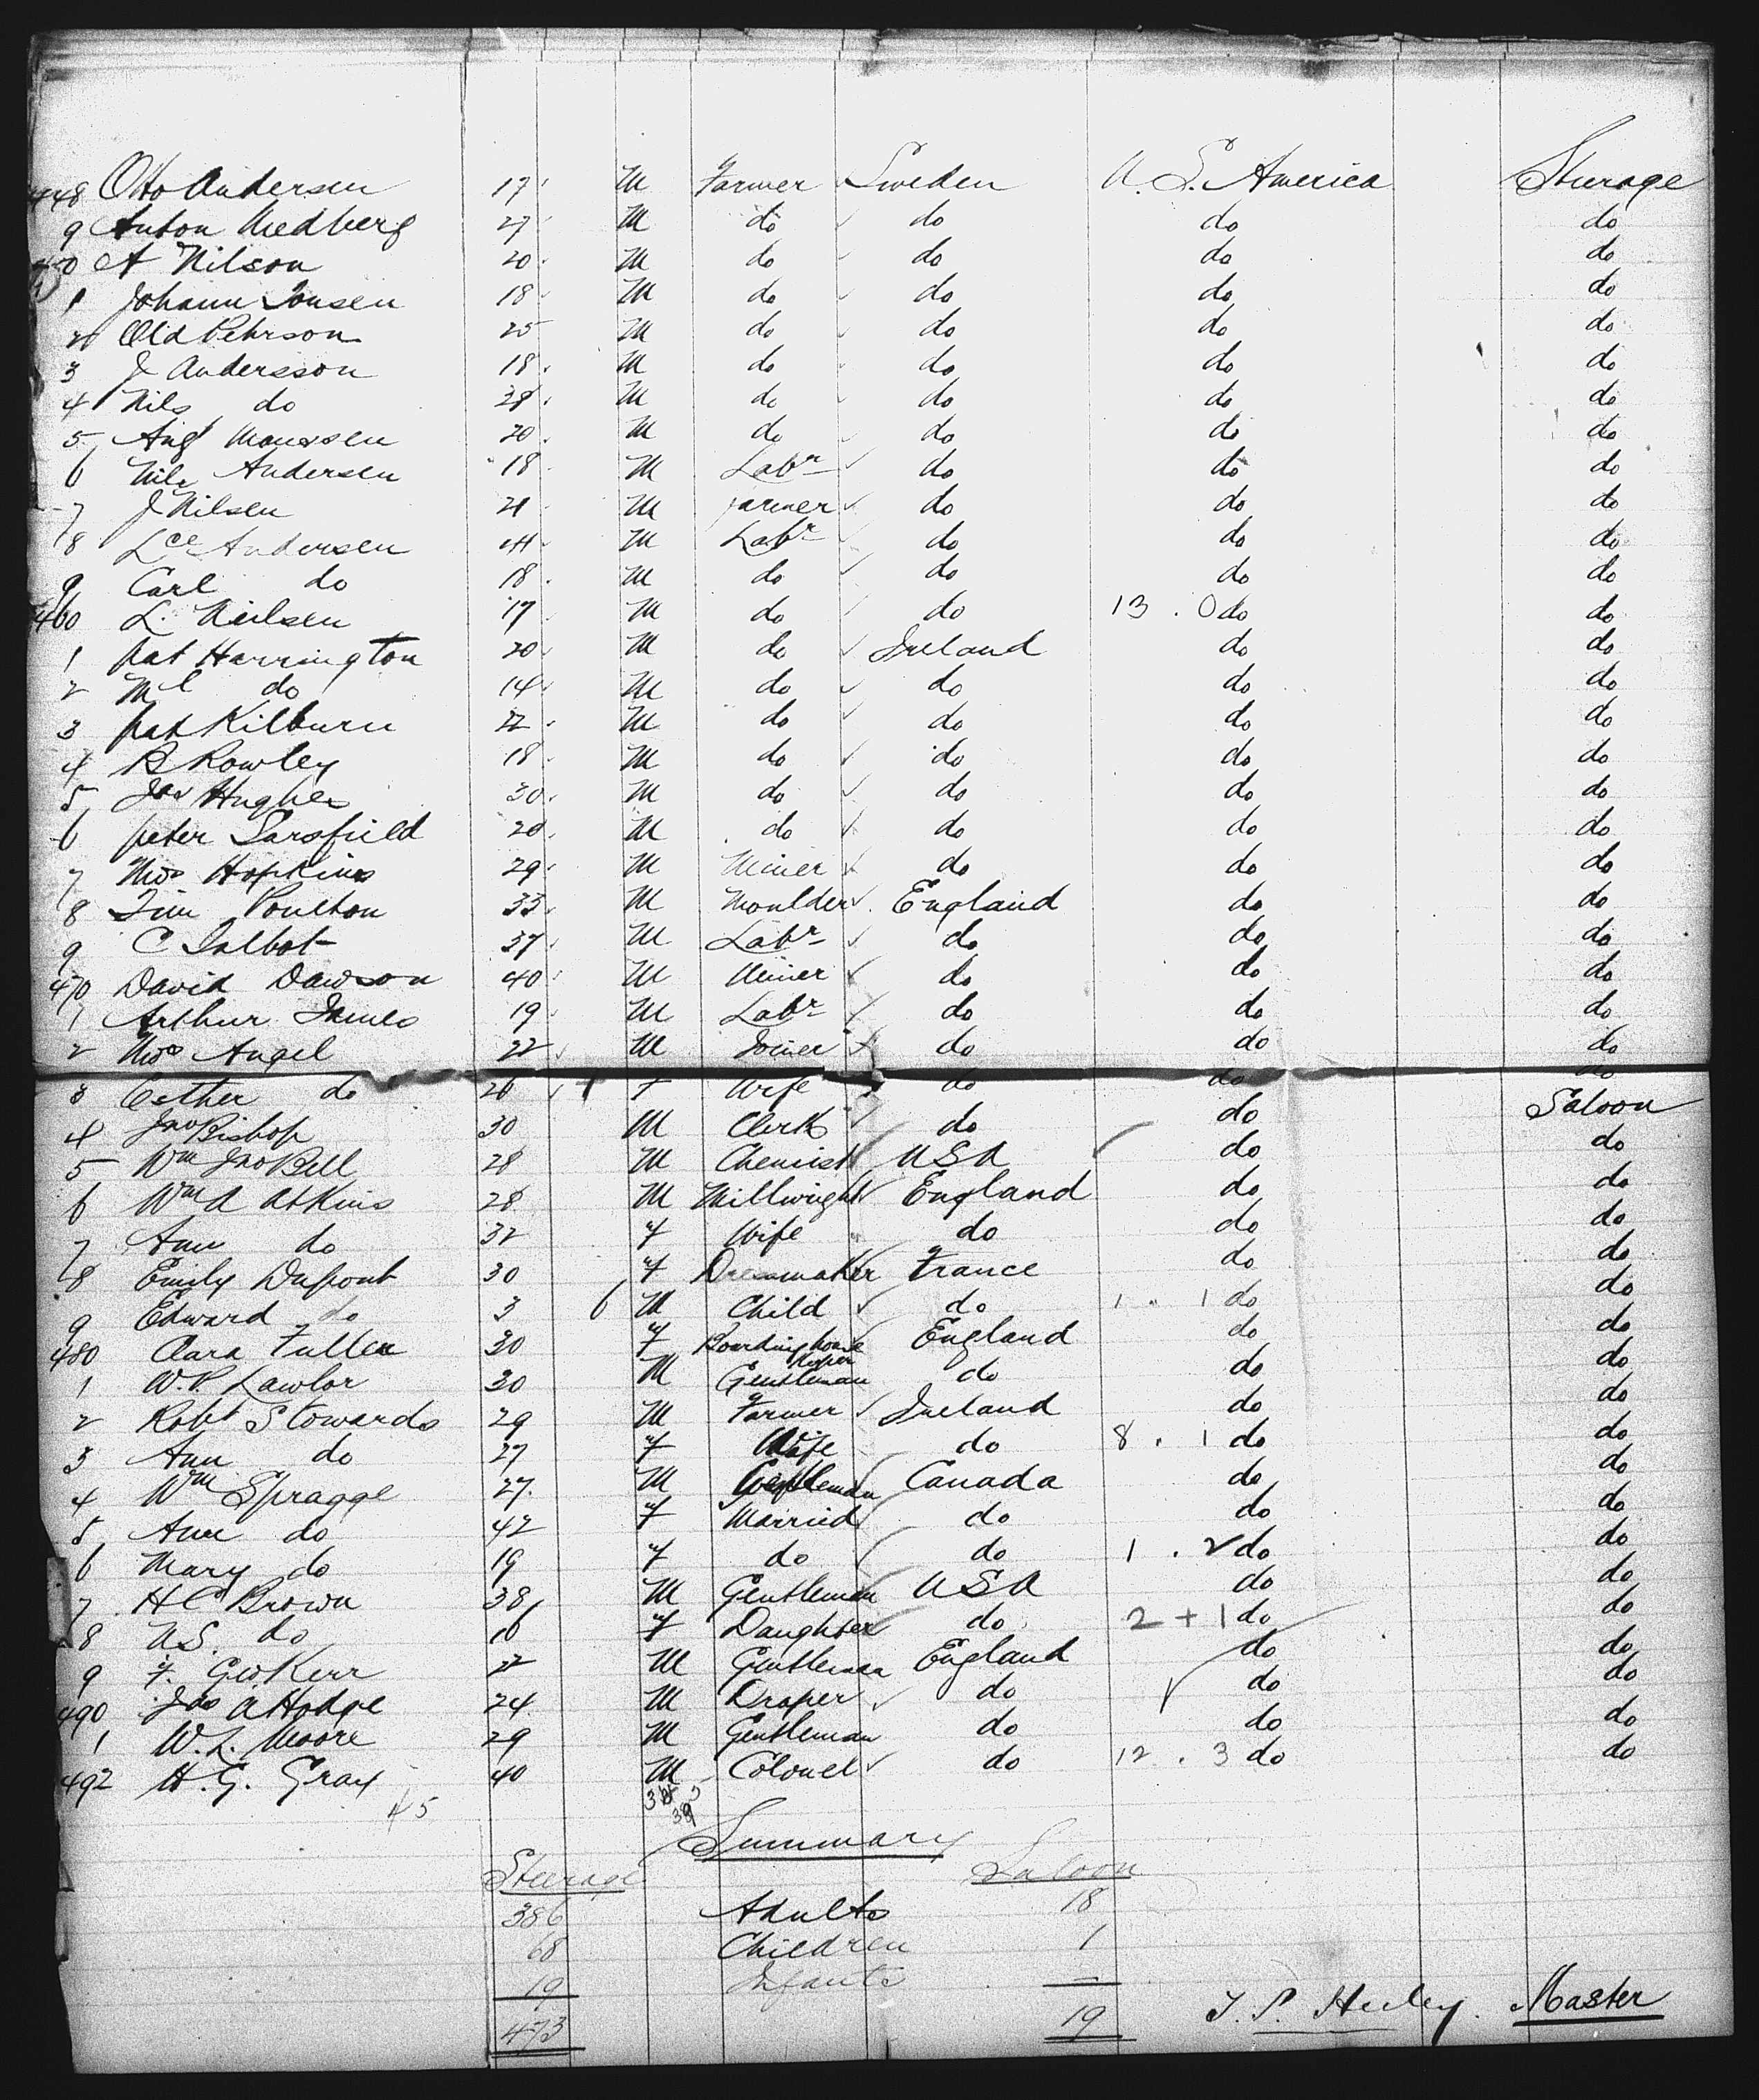 448 Otto Andersen 17 M Farmer Sweden U. S. America Steerage
9 Anton Medberg 27 M do do do do
450 A Nilson 20 M do do do do
1 Johann Jonsen 18 M do do do do
2 Old Pehrson 25 M do do do do
3 J Andersson 18 M do do do do
4 Nils do 28 M do do do do
5 Augt Monssen 20 M do do do do
6 Nils Andersen 18 M Labr do do do
7 J Nilsen 21 M Farmer do do do
8 Lce Andersen 44 M Labr do do do
9 Carl do 18 M do do do do
460 L. Neilsen 17 M do do 13 . 0 do do
1 Pat Harrington 20 M do Ireland do do
2 Ml do 14 M do do do do
3 Pat Kilburn 22 M do do do do
4 B Rowley 18 M do do do do
5 Jas Hughes 30 M do do do do
6 Peter Sarsfield 20 M do do do do
7 Thos Hopkins 29 M Miner do do do
8 Tim Poulton 33 M Moulder England do do
9 C Talbot 37 M Labr do do do
470 David Dawson 40 M Miner do do do
1 Arthur James 19 M Labr do do do
2 Thos Angel 22 M Joiner do do do
3 Esther do 26 F Wife do do do
4 Jno Bishop 30 M Clerk do do Saloon
5 Wm Jno Bell 28 M Chemist USA do do
6 Wm A Atkins 28 M Millwright England do do
7 Ann do 32 F Wife do do do
8 Emily Dupont 30 F Dressmaker France do do
9 Edward do 3 6 M Child do 1 . 1 do do
480 Clara Fuller 30 F Boarding house keeper England do do
1 W.P. Lawlor 30 M Gentleman do do do
2 Robt Stowards 29 M Farmer Ireland do do
3 Ann do 27 F Wife do 8 . 1 do do
4 Wm Spragge 27 M Gentleman Canada do do
5 Ann do 42 F Married do do do
6 Mary do 19 F do do 1 . 2 do do
7 H C Brown 38 M Gentleman USA do do
8 N.S. do 16 F Daughter do 2 + 1 do do
9 F. Geo Kerr 22 M Gentleman England do do
490 Jas A Hodge 24 M Draper do do do
1 W. L. Moore 29 M Gentleman do do do
492 H. G. Gray 40 M Colonel do 12 . 3 do do
45 39
Summary
Steerage Saloon
386 Adults 18
68 Children 1
19 Infants —
473 19 Master